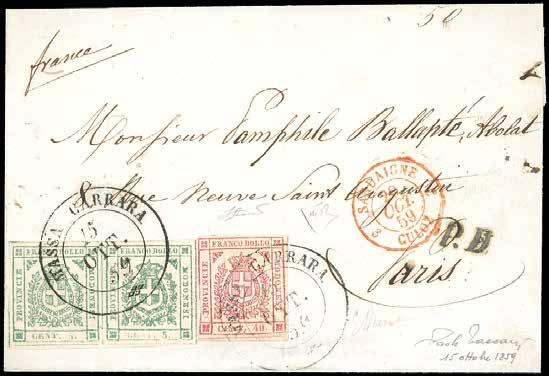 50
france
Monsieur Pamphile Ballapté, Avolat
8 Rue Neuve Saint Augustin
Paris
MASSA CARRARA
15
OTT.
59
SARDAIGNE
OCT.
59
CULOZ
P.D
FRANCO BOLLO
PROVINCIE
MODONESI
CENT. 5.
FRANCO BOLLO
PROVINCIE
MODONESI
CENT. 5.
FRANCO BOLLO
PROVINCIE
MODONESI
CENT. 40.
CARRARA
15 ottobre 1859